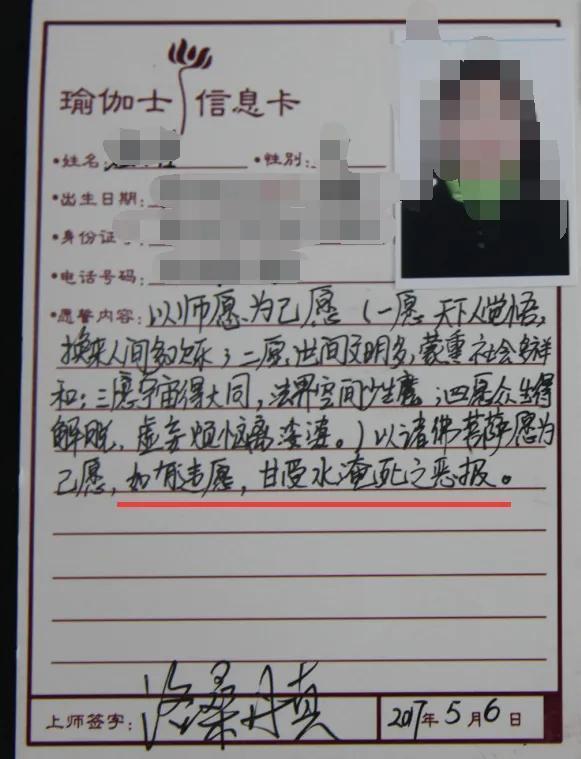 瑜伽士 信息卡
•姓名： •性别：
•出生日期：
•身份证
•电话号码：
•愿誓内容：以师愿为己愿（一愿天下人觉悟，
换来人间多欢乐；二愿出间文明多，蒙熏社会多祥
和；三愿宇宙得大同，法界空间少生魔；四愿众生得
解脱，虚妄烦恼离娑婆。）以诸佛菩萨愿为
己愿，如有违愿，甘受水淹死之恶报。
上师签字：洛桑丹真 2017年5月6日